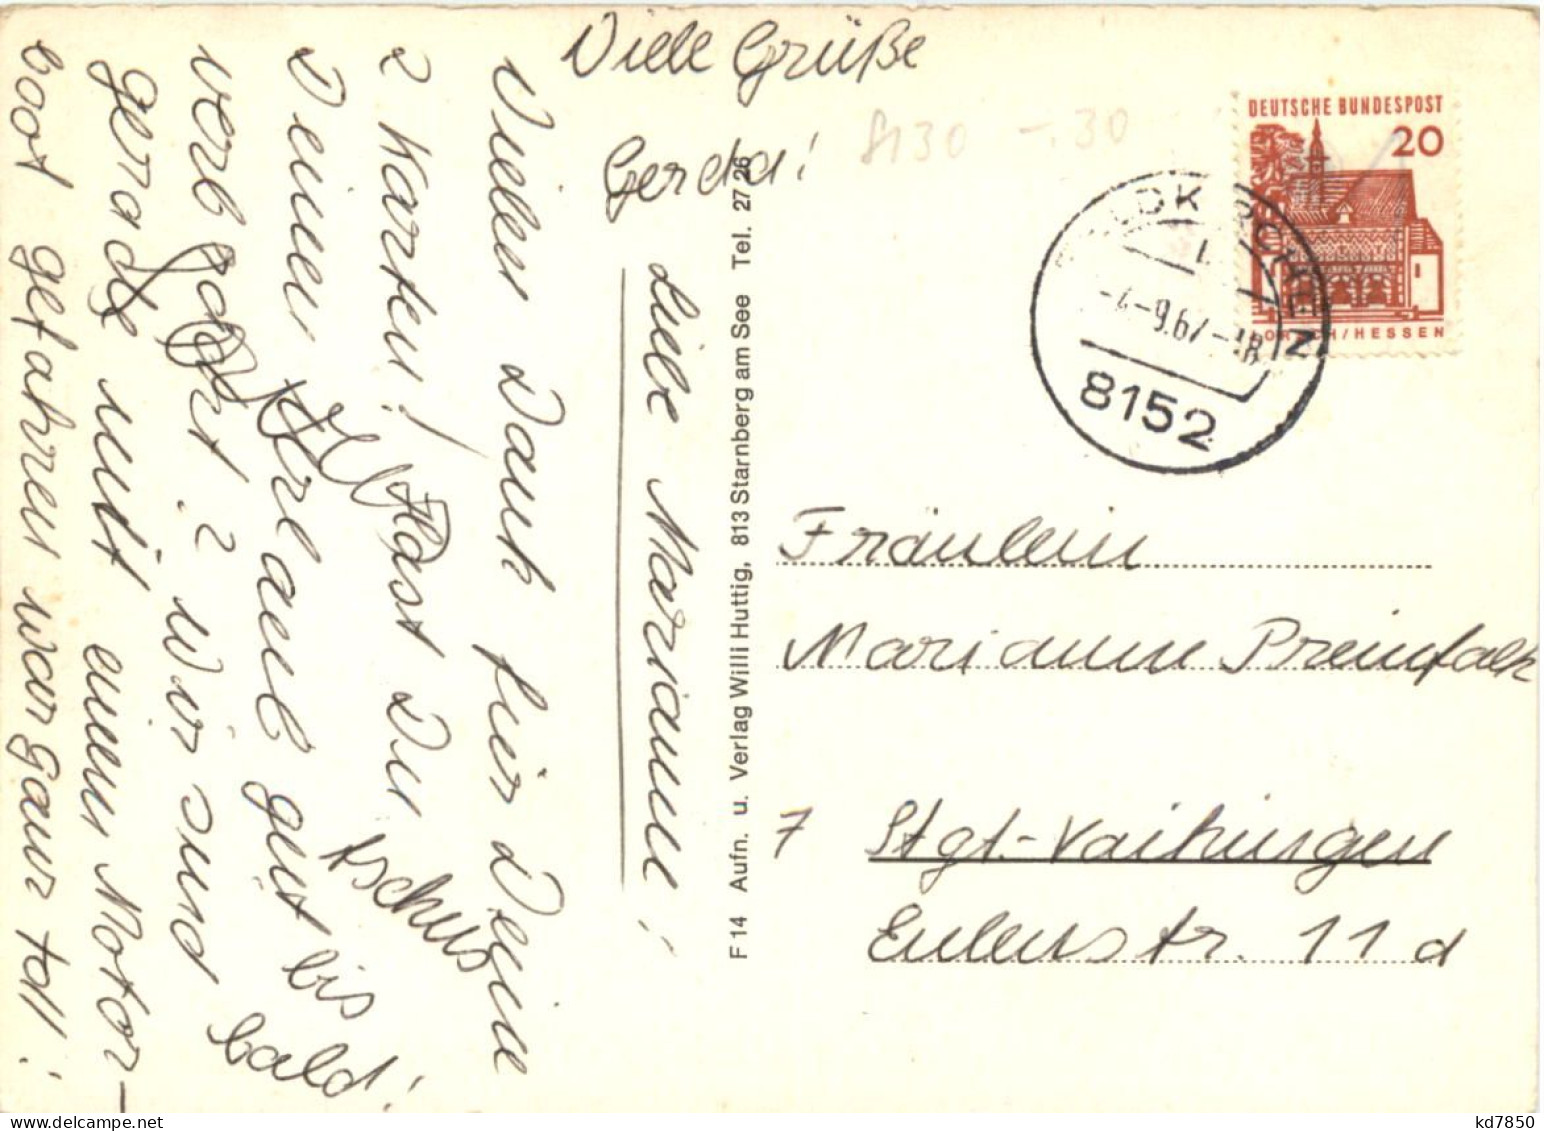 Viele Grüße
Gerda!
Liebe Marianne!
Vielen Dank für Deine
2 Karten! Hast Du
Deinen Urlaub gut
verbracht? Wir sind
gerade mit einem Motor-
boot gefahren war ganz toll!
bis
bald!
tschüs
F 14 Aufn. u. Verlag Willi Huttig, 813 Starnberg am See Tel. 27 26
8130 -.30
DEUTSCHE BUNDESPOST
20
LORSCH/HESSEN
-4.-9.67-18
8152
Fräulein
Marianne Preinfalk
7 Stgt.-Vaihingen
Eulerstr. 11 d
kd7850